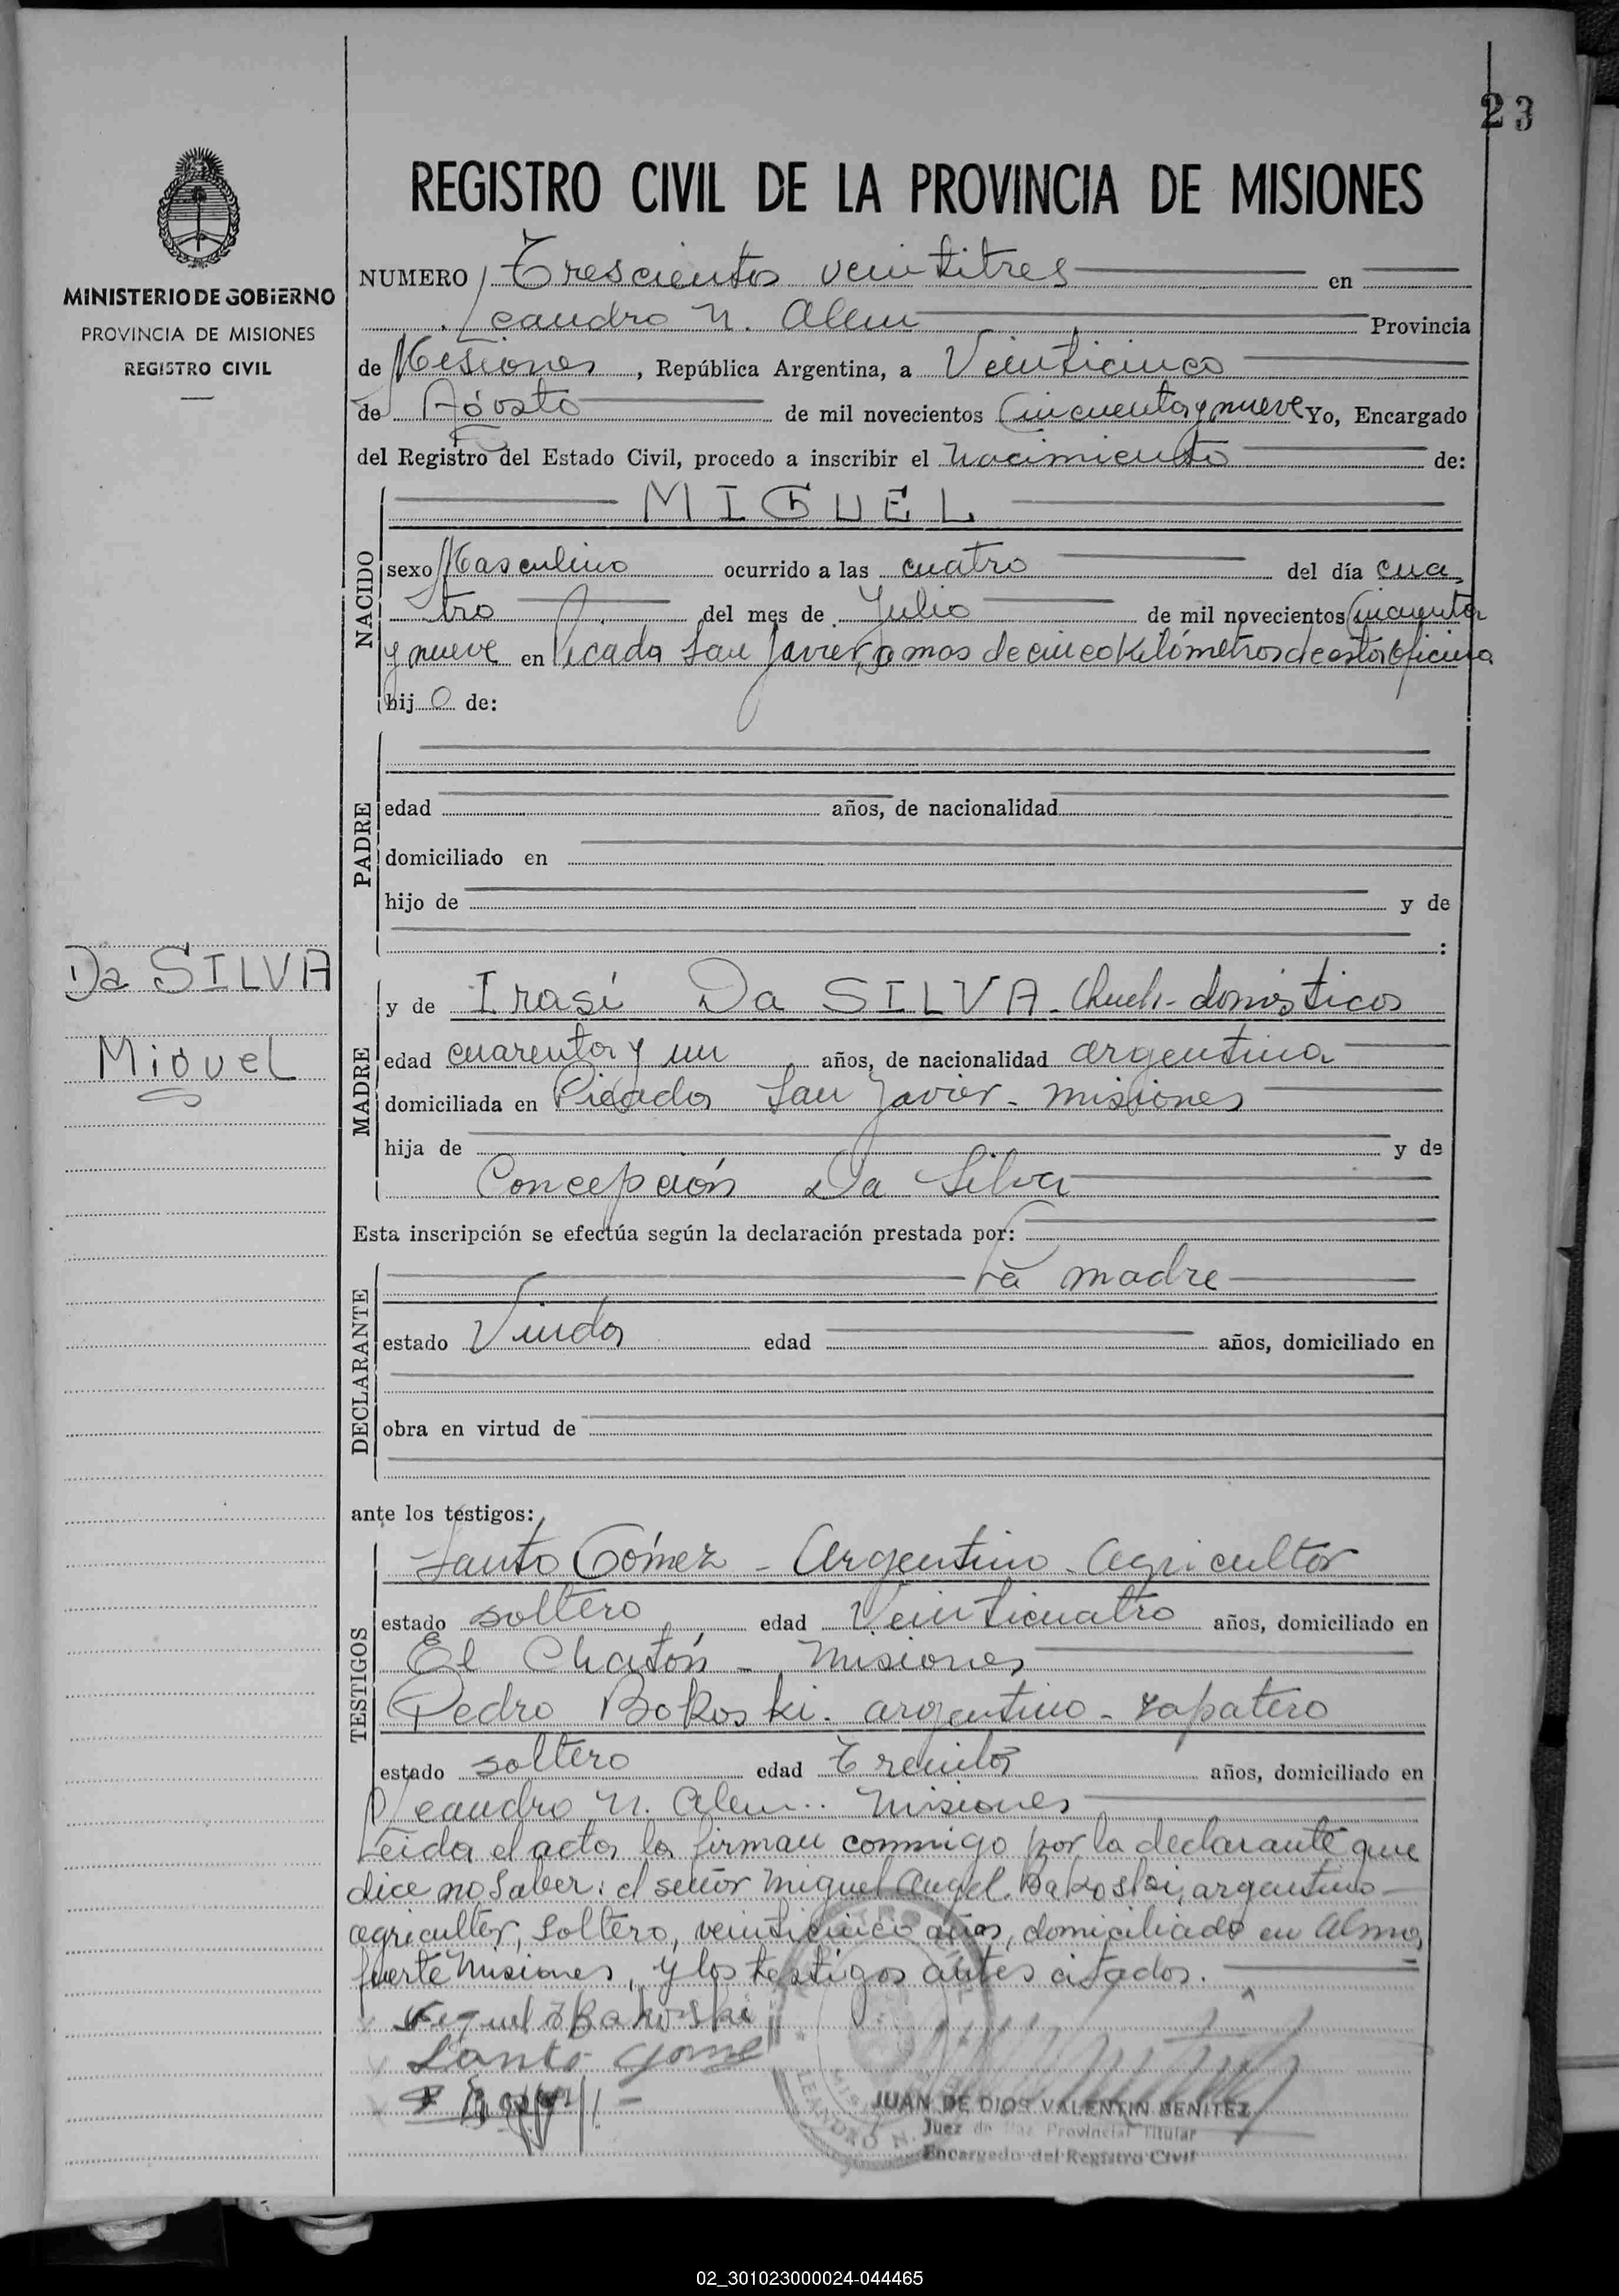 23
MINISTERIO DE GOBIERNO
PROVINCIA DE MISIONES
REGISTRO CIVIL
REGISTRO CIVIL DE LA PROVINCIA DE MISIONES
NUMERO Trescientos veintitres en
Leandro N. Alem Provincia
de Misiones, República Argentina, a Veinticinco
de Agosto de mil novecientos Cincuenta y nueve Yo, Encargado
del Registro del Estado Civil, procedo a inscribir el Nacimiento de:
NACIDO
MIGUEL
sexo Masculino ocurrido a las cuatro del día cua
tro del mes de Julio de mil novecientos Cincuenta
y nueve en Picada San Javier, a mas de cinco Kilómetros de esta Oficina
hijo de:
PADRE
edad años, de nacionalidad
domiciliado en
hijo de y de
:
Da SILVA
Miguel
MADRE
y de Irasi Da SILVA - domésticos
edad cuarenta y un años, de nacionalidad argentina
domiciliada en Picada San Javier - misiones
hija de y de
Concepción Da Silva
Esta inscripción se efectúa según la declaración prestada por:
DECLARANTE
La madre
estado Viuda edad años, domiciliado en
obra en virtud de
ante los testigos:
TESTIGOS
Santo Gómez - Argentino - Agricultor
estado soltero edad Veinticuatro años, domiciliado en
El Chatón - Misiones
Pedro Bokoski - argentino - zapatero
estado soltero edad Treinta años, domiciliado en
Leandro N. Alem - Misiones
Leida el acta la firman conmigo por la declarante que
dice no saber: el señor Miguel Angel Bakoski, argentino -
agricultor, soltero, veinticinco años, domiciliado en Alma
fuerte Misiones, y los testigos antes citados.
Miguel A Bakoski
Santo Gome
JUAN DE DIOS VALENTIN BENITEZ
Juez de Paz Provincial Titular
Encargado del Registro Civil
02_301023000024-044465